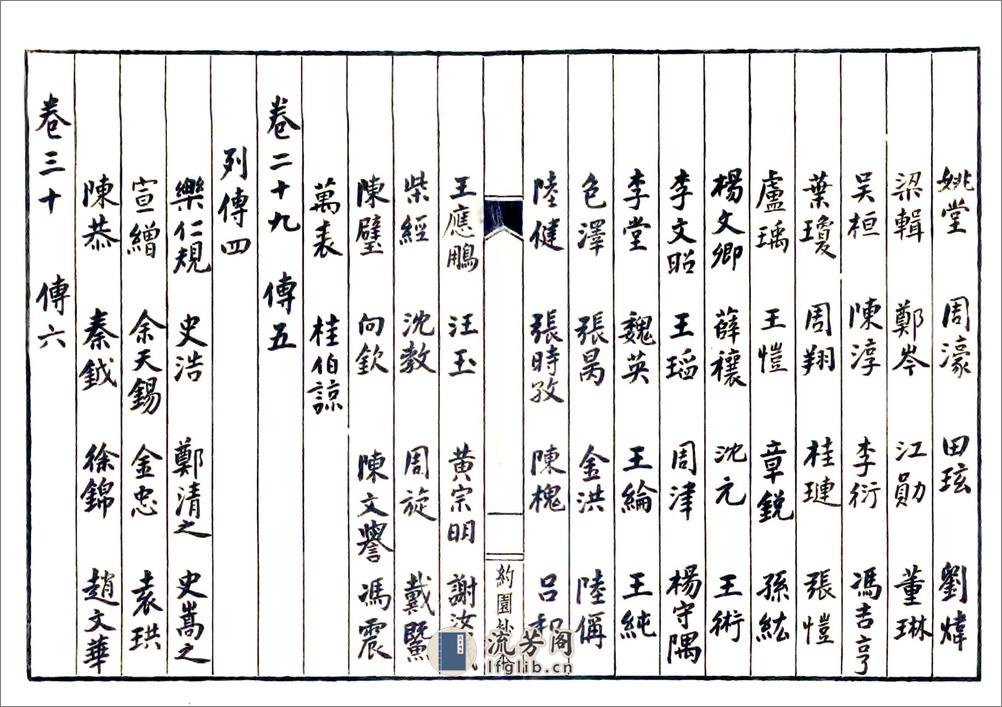 姚堂 周濠 田玹 劉煒
梁輯 鄭岑 江勛 董琳
吴桓 陳淳 李衍 馮吉亨
葉瓊 周翔 桂璉 張愷
盧瑀 王愷 章銳 孫紘
楊文卿 薛穰 沈元 王術
李文昭 王瑫 周津 楊守隅
李堂 魏英 王綸 王純
色澤 張昺 金洪 陸偁
陸健 張時孜 陳槐 吕和
約園
王應鵬 汪玉 黄宗明 謝汝
柴經 沈教 周旋 戴鱀
陳璧 向欽 陳文譽 馮震
萬表 桂伯諒
卷二十九 傳五
列傳四
樂仁規 史浩 鄭清之 史嵩之
宣繒 余天錫 金忠 袁珙
陳恭 秦鉞 徐錦 趙文華
卷三十 傳六
流芳阁
lfglib.cn